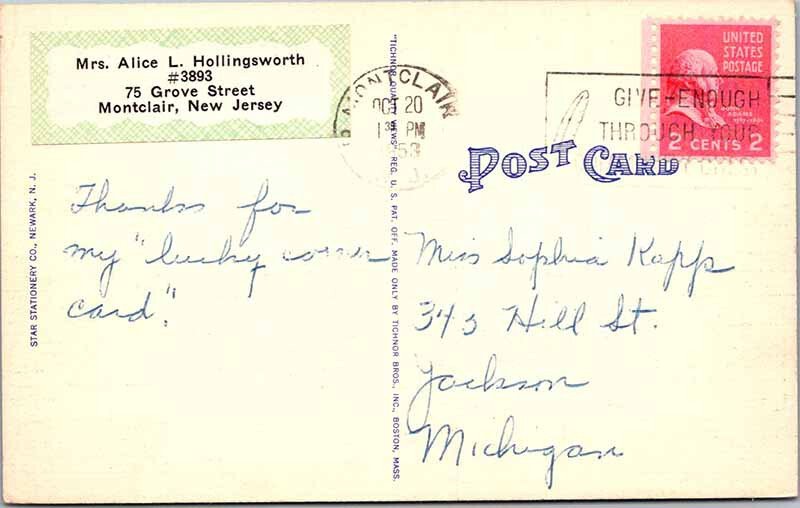 Mrs. Alice L. Hollingsworth
#3893
75 Grove Street
Montclair, New Jersey
MONTCLAIR
OCT 20
PM
53
GIVE-ENOUGH
THROUGH YOUR
UNITED
STATES
POSTAGE
JOHN
ADAMS
2 CENTS 2
POST CARD
STAR STATIONERY CO., NEWARK, N. J.
Thanks for
my "lucky corner
card."
"TICHNOR QUALITY VIEWS" REG. U. S. PAT. OFF. MADE ONLY BY TICHNOR BROS., INC., BOSTON, MASS.
Miss Sophia Kapps
343 Hill St.
Jackson
Michigan